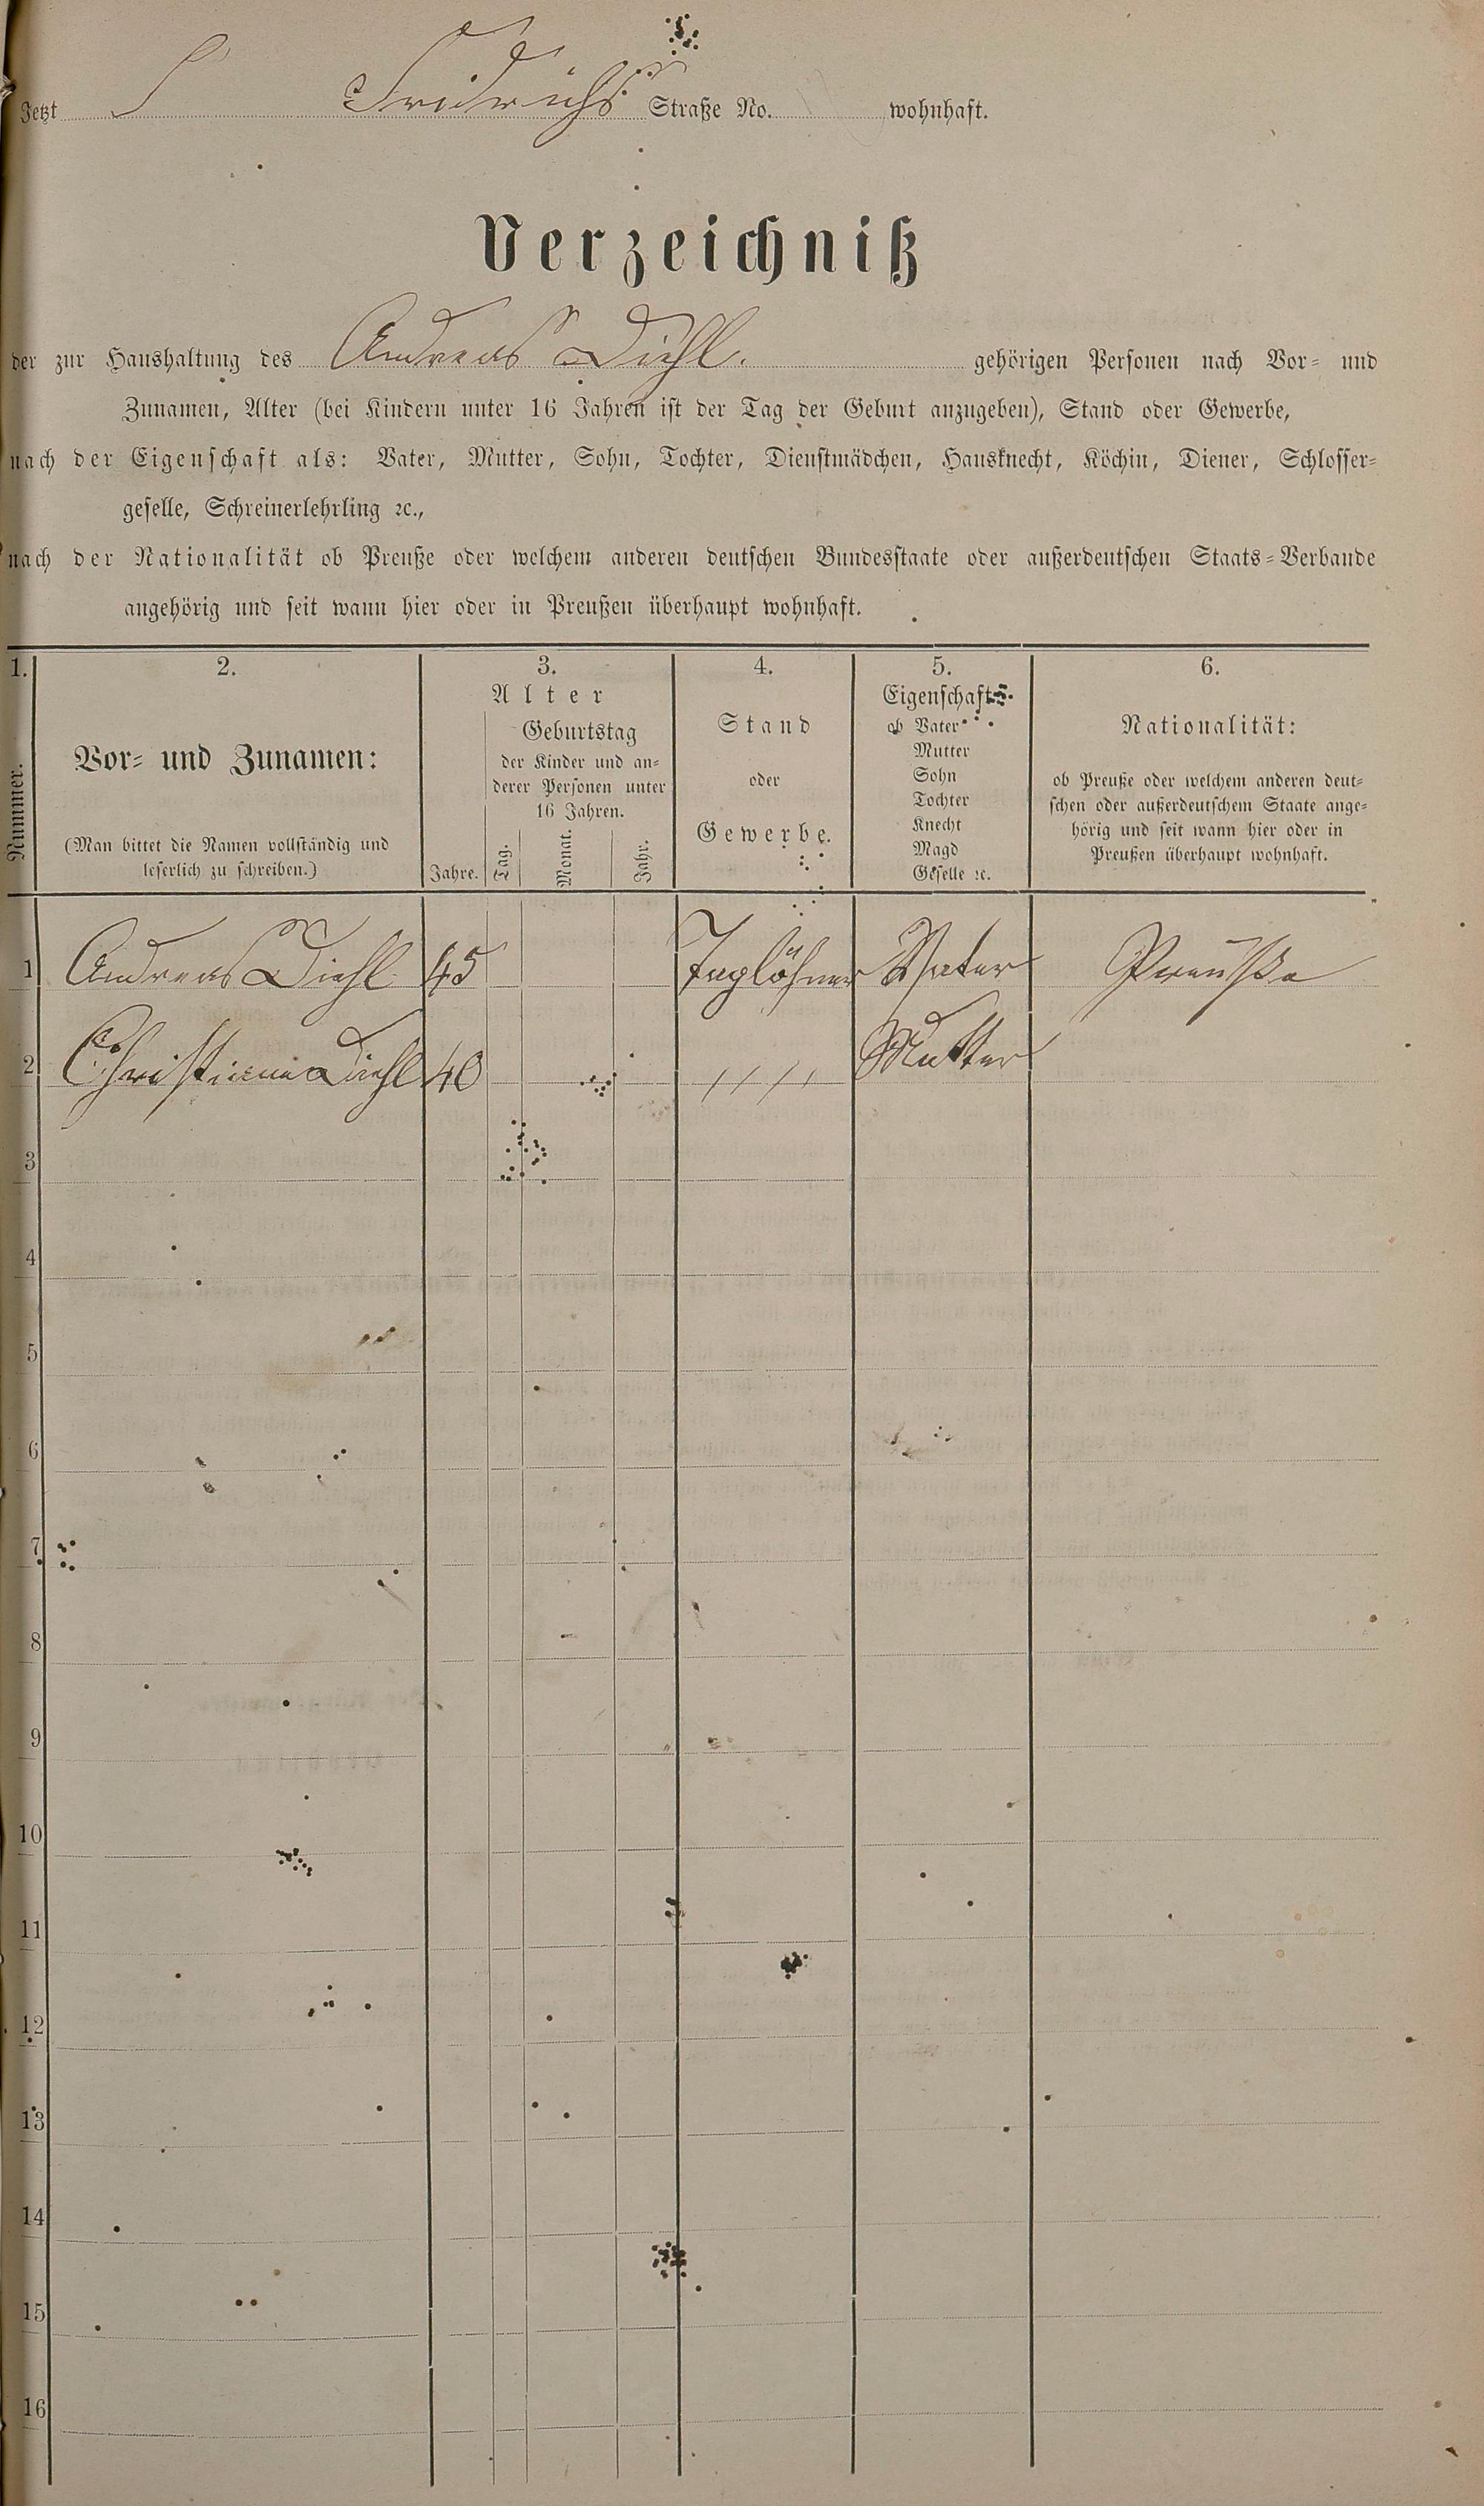 Jetzt Fridrichs Straße No. wohnhaft.
Verzeichniß
der zur Haushaltung des Andreas Diehl. gehörigen Personen nach Vor- und
Zunamen, Alter (bei Kindern unter 16 Jahren ist der Tag der Geburt anzugeben), Stand oder Gewerbe,
nach der Eigenschaft als: Vater, Mutter, Sohn, Tochter, Dienstmädchen, Hausknecht, Köchin, Diener, Schlosser-
geselle, Schreinerlehrling ꝛc.,
nach der Nationalität ob Preuße oder welchem anderen deutschen Bundesstaate oder außerdeutschen Staats-Verbande
angehörig und seit wann hier oder in Preußen überhaupt wohnhaft.
1.
Nummer.
2.
Vor- und Zunamen:
(Man bittet die Namen vollständig und
leserlich zu schreiben.)
3.
Alter
Jahre.
Geburtstag
der Kinder und an-
derer Personen unter
16 Jahren.
Tag. Monat. Jahr.
4.
Stand
oder
Gewerbe.
5.
Eigenschaft
ob Vater
Mutter
Sohn
Tochter
Knecht
Magd
Geselle ꝛc.
6.
Nationalität:
ob Preuße oder welchem anderen deut-
schen oder außerdeutschem Staate ange-
hörig und seit wann hier oder in
Preußen überhaupt wohnhaft.
1 Andreas Diehl 45 Taglöhner Vater Preuße
2 Christiane Diehl 40 //// Mutter
3
4
5
6
7
8
9
10
11
12
13
14
15
16